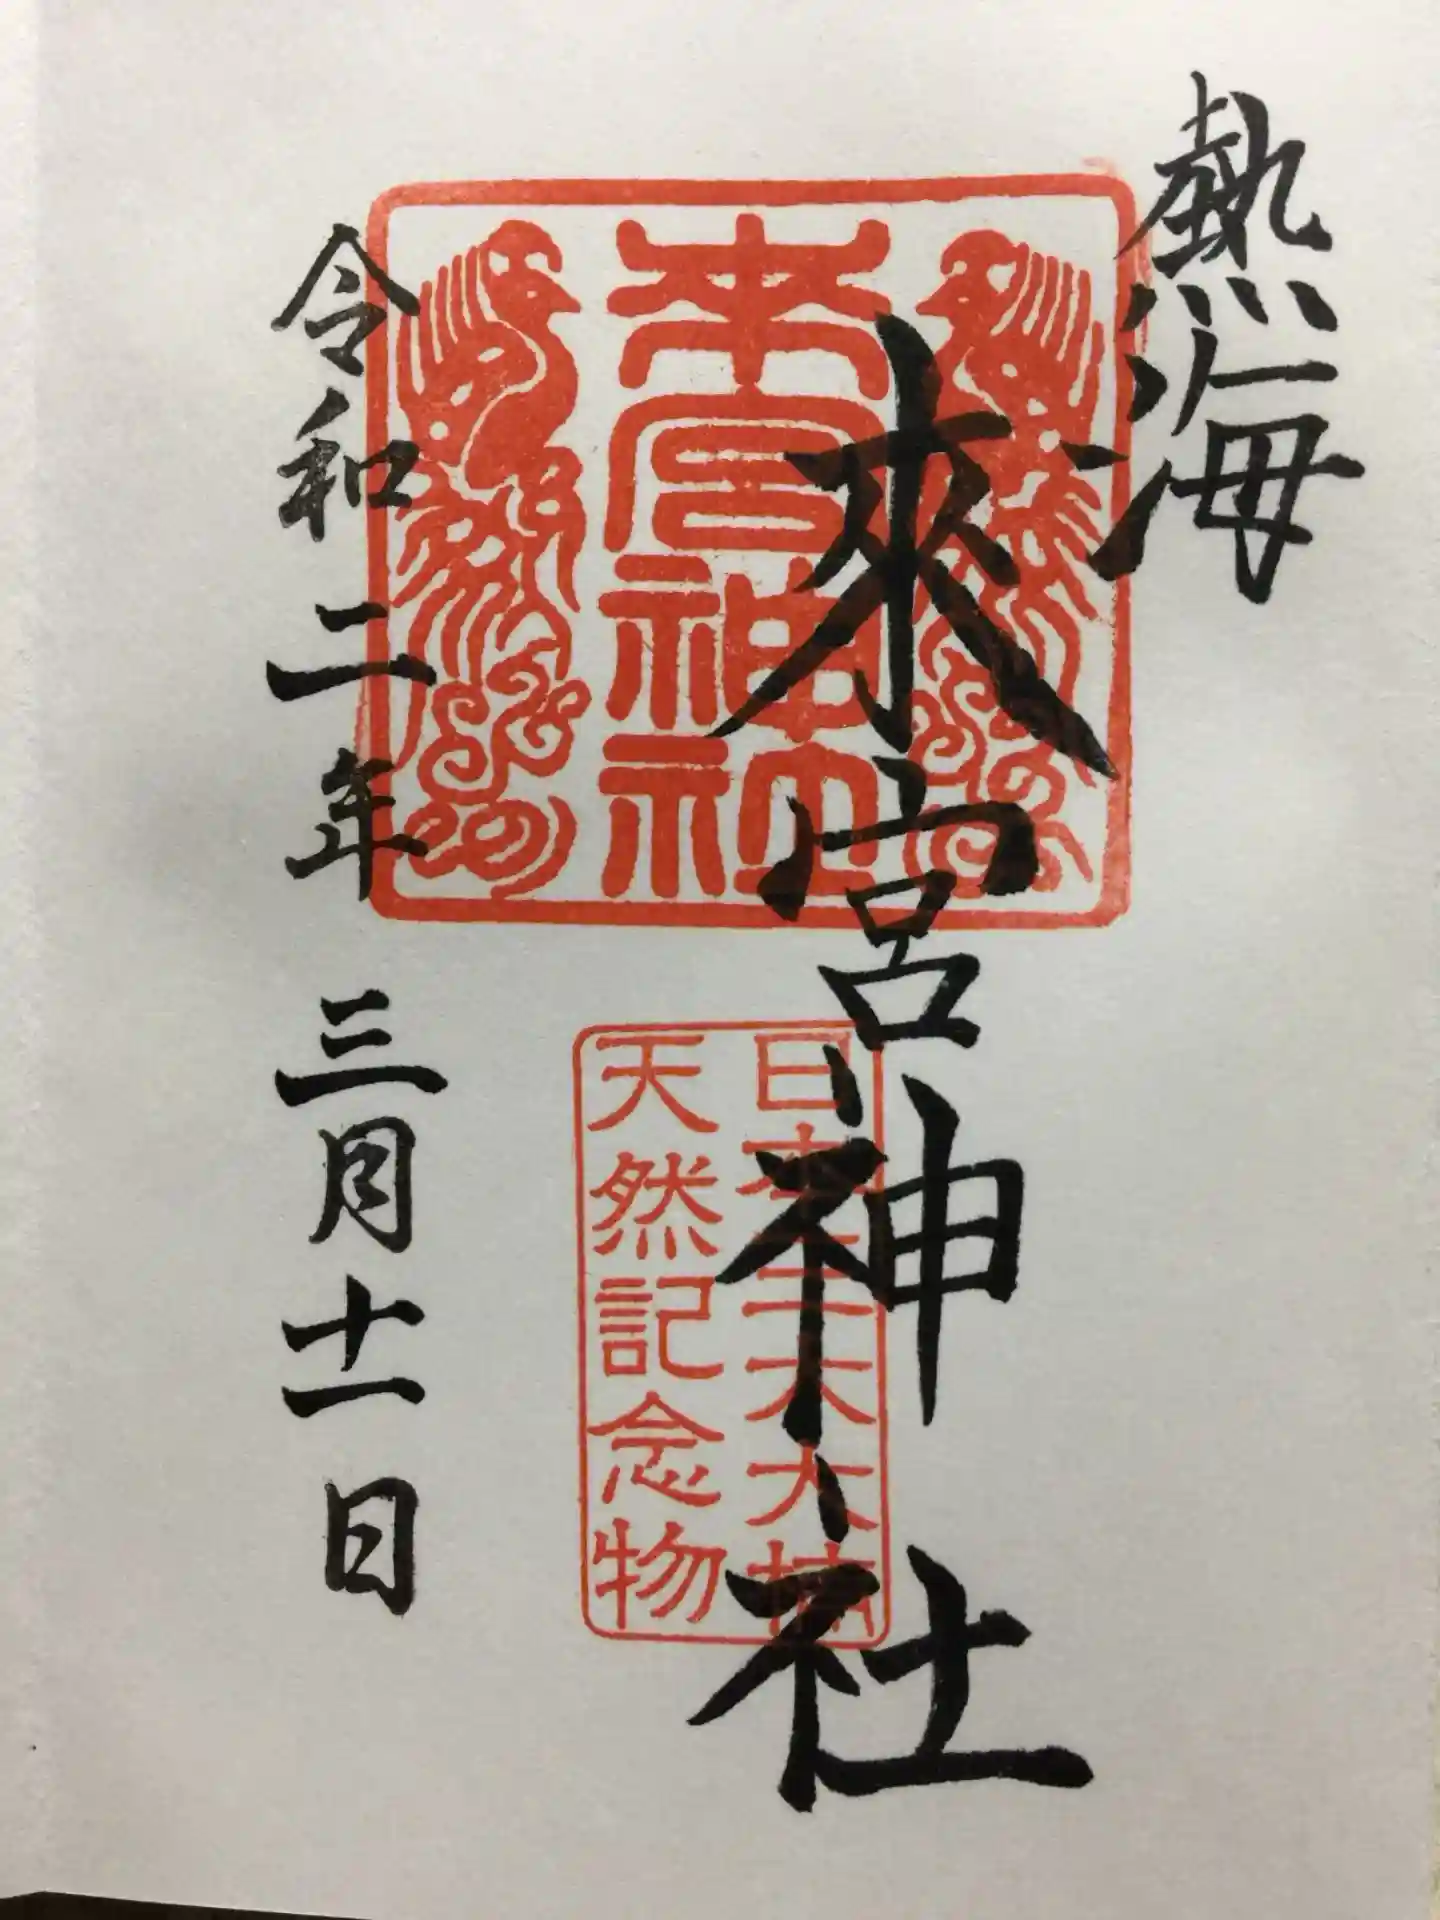 熱海
來宮神社
來宮神社
日本三大大楠
天然記念物
令和二年 三月十一日